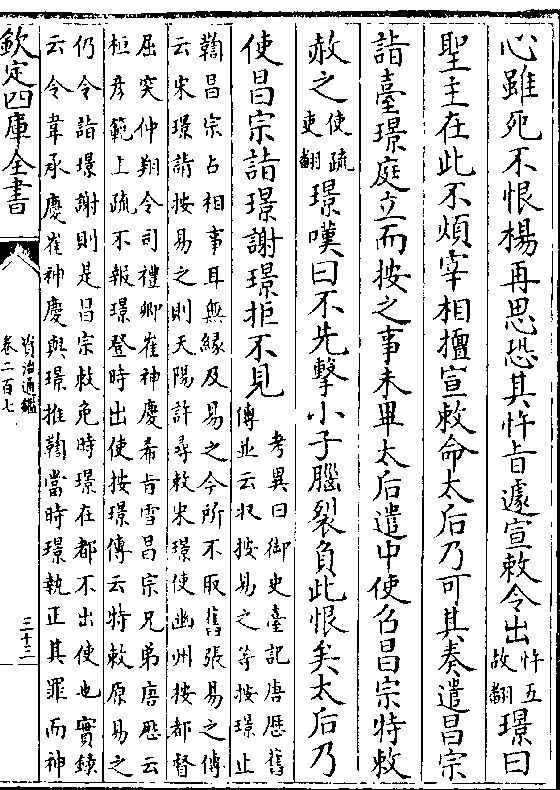 心雖死不恨楊再思恐其忤旨遽宣敕令出忤五故翻璟曰
聖主在此不煩宰相擅宣敕命太后乃可其奏遣昌宗
詣臺璟庭立而按之事未畢太后遣中使召昌宗特敕
赦之使疏吏翻璟嘆曰不先擊小子腦裂負此恨矣太后乃
使昌宗詣璟謝璟拒不見考異曰御史臺記唐歷舊
傳並云收按易之等按璟止
鞫昌宗占相事耳無緣及易之今所不取舊張易之傳
云宋璟請按易之則天陽許尋敕宋璟使幽州按都督
屈突仲翔令司禮卿崔神慶希旨雪昌宗兄弟唐歷云
桓彦範上疏不報璟登時出使按璟傳云特敕原易之
仍令詣璟謝則是昌宗敕免時璟在都不出使也實錄
云令韋承慶崔神慶與璟推鞫當時璟執正其罪而神
欽定四庫全書
資治通鑑
卷二百七
三十三